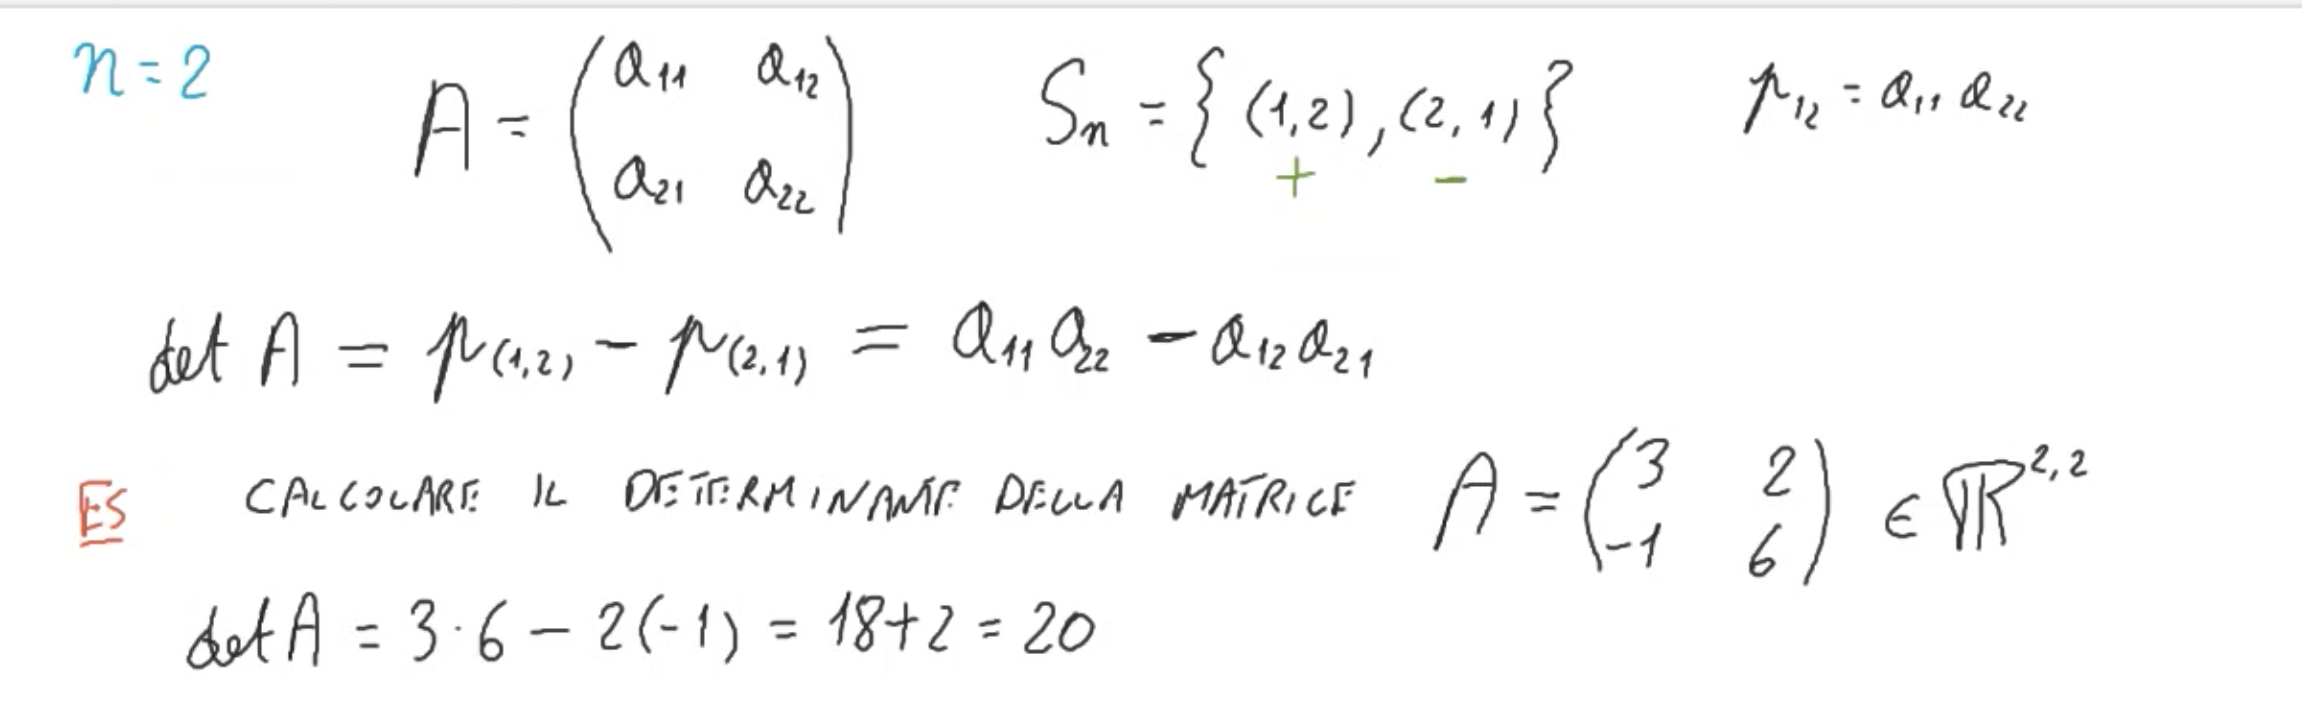 n=2 A = (a₁₁ a₁₂ a₂₁ a₂₂) Sₙ = { (1,2), (2,1) } p₁₂ = a₁₁ a₂₂
+ −
det A = p₍₁,₂₎ − p₍₂,₁₎ = a₁₁ a₂₂ − a₁₂ a₂₁
ES CALCOLARE IL DETERMINANTE DELLA MATRICE A = (3 2 -1 6) ∈ ℝ²,²
det A = 3·6 − 2(-1) = 18+2 = 20